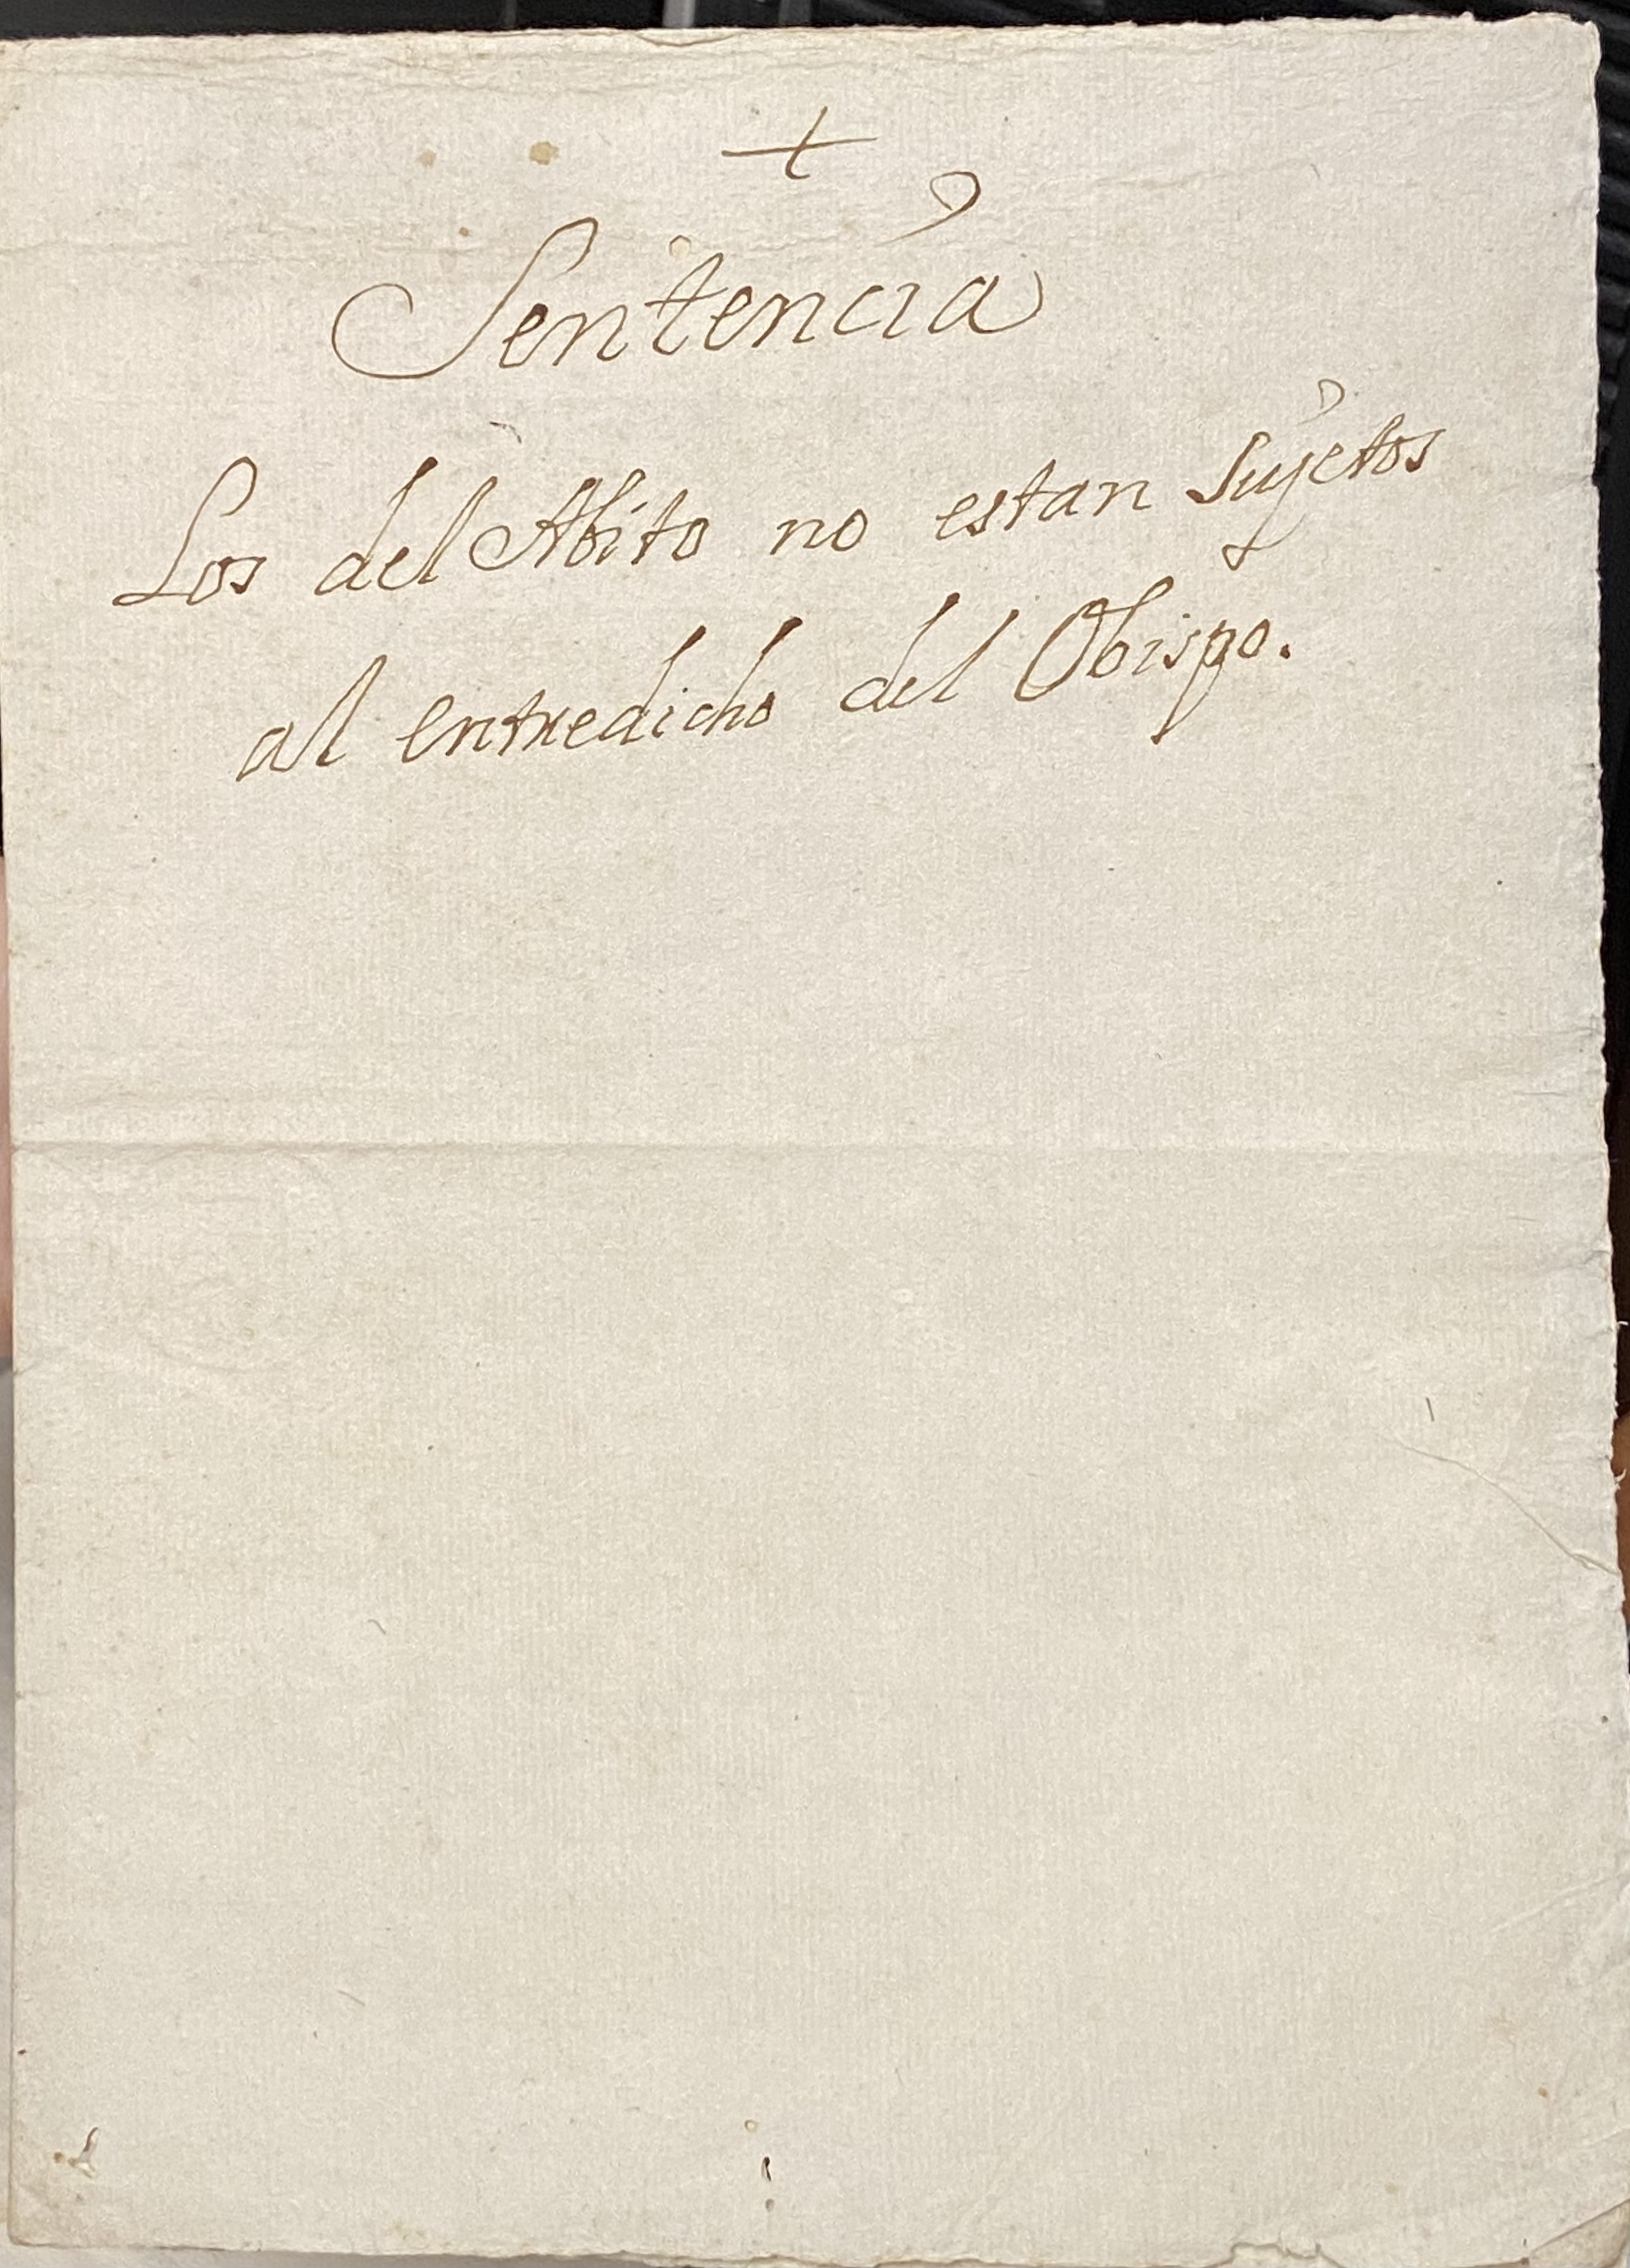 +
Sentencia
Los del Abito no estan Sujetos
al entredicho del Obispo.